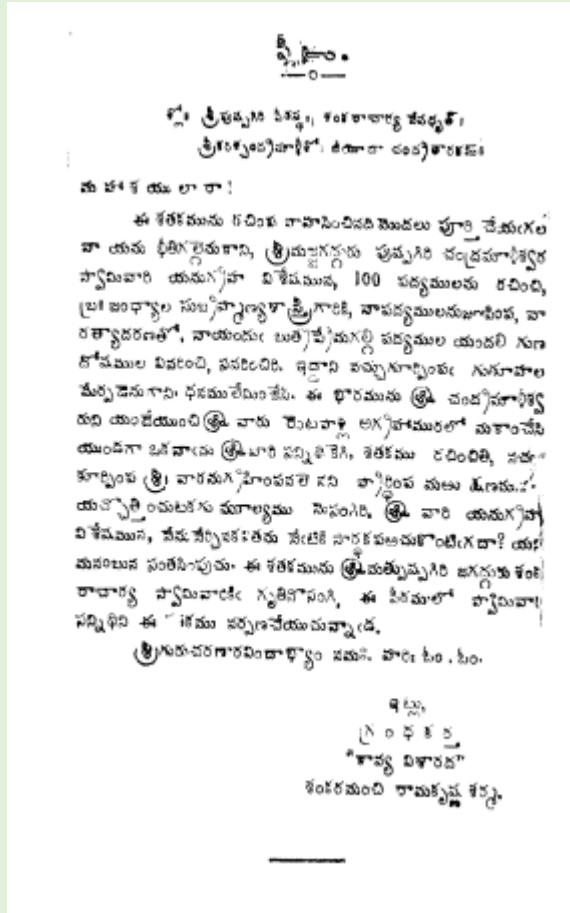 శ్లో॥ శ్రీపుష్పగిరి పీఠస్థః, శంకరాచార్య వేషధృత్।
మ హా శ యు లా రా !
ఈ శతకమును రచింప నూహించినది మొదలు పూర్తి చేయఁగల
నా యను భీతిగల్గెనుకాని, శ్రీమజ్జగద్గురు పుష్పగిరి చంద్రమౌళీశ్వర
స్వామివారి యనుగ్రహ విశేషమున, 100 పద్యములను రచించి,
బ్రహ్మ జంధ్యాల సుబ్రహ్మణ్యశాస్త్రిగారికి, నాపద్యములనుజూపింప, వా
రత్యాదరణతో, నాయందుఁ బుత్రప్రేమగల్గి పద్యముల యందలి గుణ
దోషముల వివరించి, సవరించిరి. ఇద్దాని నచ్చుగూర్పింపఁ గుతూహల
మేర్పడెనుగాని ధనములేమింజేసి. ఈ భారమును శ్రీ చంద్రమౌళీశ్వ
రుని యందేయుంచి శ్రీ వారు రెంటపాళ్ల అగ్రహారములో మకాంచేసి
యుండగా ఒకనాఁడు శ్రీ వారి సన్నిధి కేగి, శతకము రచించితి,
కూర్పింప శ్రీ వారనుగ్రహింపవలె నని ప్రార్థింప మఱు క్షణము
యచ్చొత్తించుటకగు మూల్యము నొసంగిరి. శ్రీ వారి యనుగ్రహ
విశేషమున, నేను నేర్చినకవితను నేఁటికి సార్థకపఱచుకొంటిఁగదా? యని
మనంబున సంతసింపుచు. ఈ శతకమును శ్రీమత్పుష్పగిరి జగద్గురు శంక
రాచార్య స్వామివారికిఁ గృతినొసంగి, ఈ పీఠములో స్వామివారి
సన్నిధిని ఈ శతకము నర్పణచేయుచున్నాఁడ.
శ్రీగురుచరణారవిందాభ్యాం నమః. హరిః ఓం . ఓం.
ఇట్లు,
గ్రం ధ క ర్త
"కావ్య విశారద"
శంకరమంచి రామకృష్ణ శర్మ.